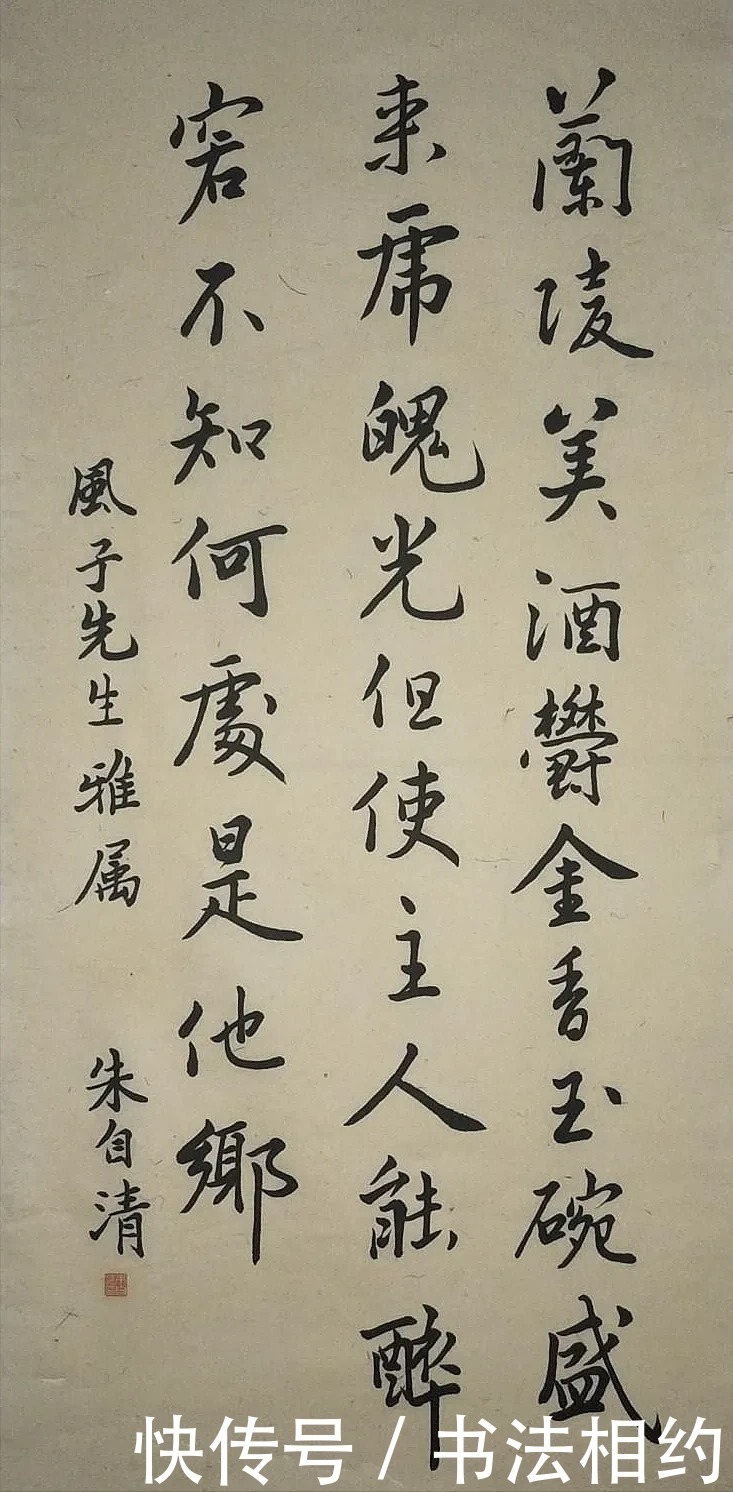 蘭陵美酒欝金香玉碗盛
来琥魄光但使主人能醉
客不知何處是他鄉
風子先生雅属
朱自清
快传号 / 书法相约